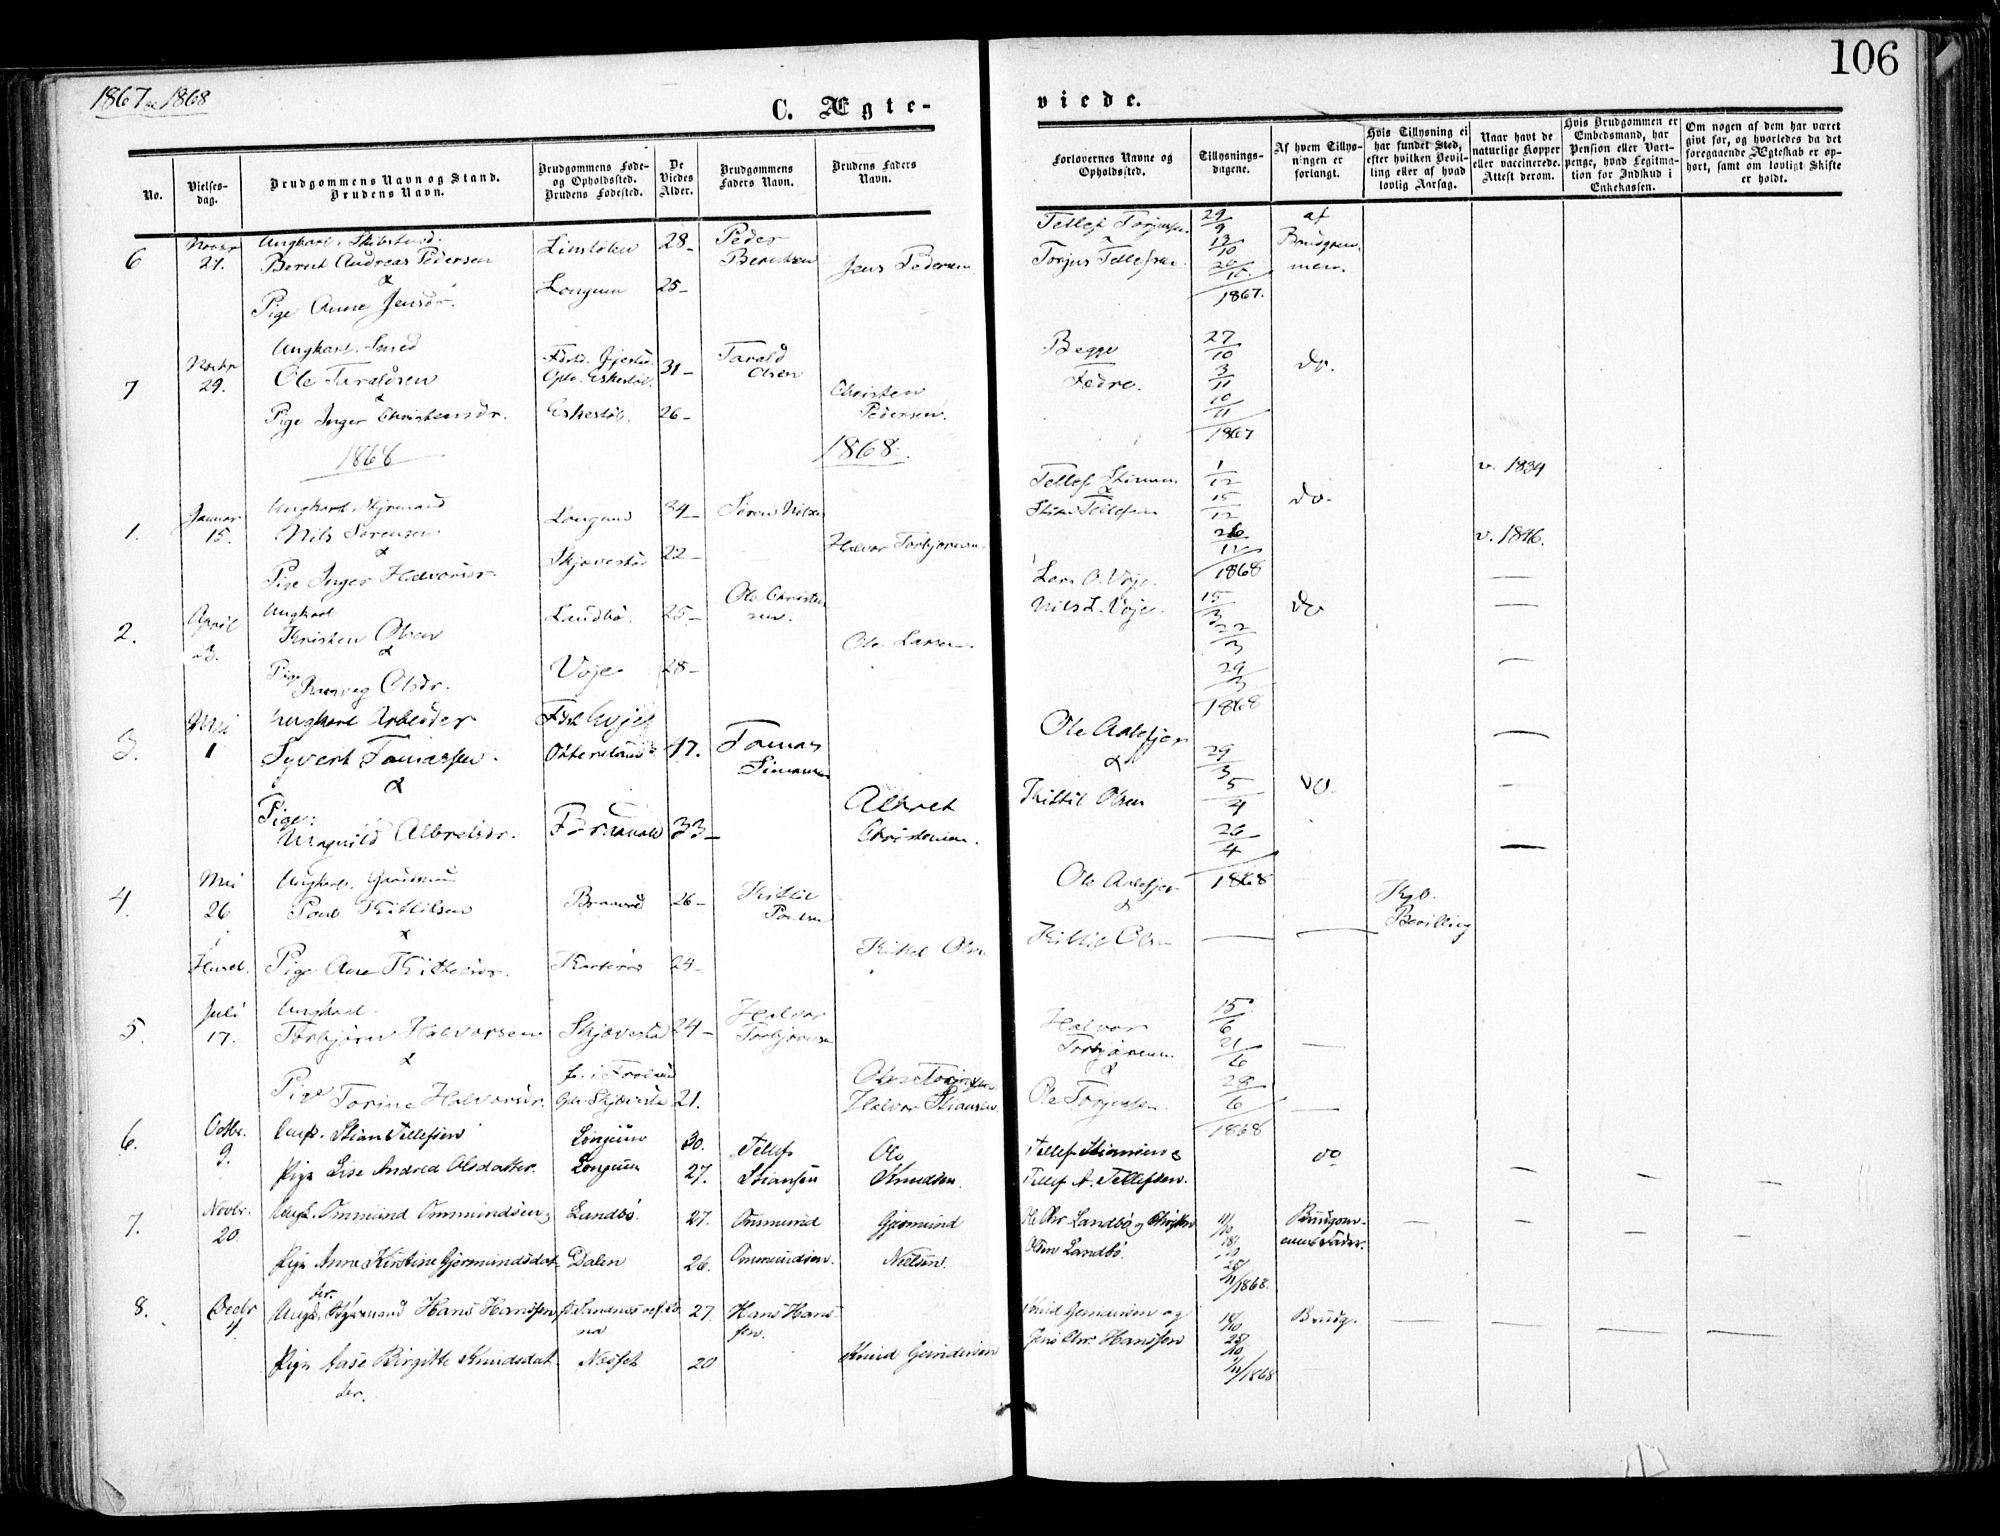 1867 og 1868
106
C. Ægte-
viede.
No.
Vielses-
dag.
Brudgommens Navn og Stand.
Brudens Navn.
Brudgommens Føde-
og Opholdssted.
Brudens Fødested.
De
Viedes
Alder.
Brudgommens
Faders Navn.
Brudens Faders
Navn.
Forlovernes Navne og
Opholdssted.
Tillysnings-
dagene.
Af hvem Tillys-
ningen er
forlangt.
Hvis Tillysning ei
har fundet Sted,
efter hvilken Bevil-
ling eller af hvad
lovlig Aarsag.
Naar havt de
naturlige Kopper
eller vaccinerede.
Attest derom.
Hvis Brudgommen er
Embedsmand, har
Pension eller Vart-
penge, hvad Legitima-
tion for Indskud i
Enkekassen.
Om nogen af dem har været
givt før, og hvorledes da det
foregaaende Ægteskab er op-
hørt, samt om lovligt Skifte
er holdt.
6 Novbr 27. Ungkarl.
Bernt Andreas Pedersen
&
Pige Anne Jensdr.
28-
Longum 25-
Peder
Berntsen
Jens Pedersen
Tellef Torjusen
&
Torjus Tellefsen
29/9
13/10
20/10
1867.
af
Brudgom-
men.
7 Novbr 29. Ungkarl. Smed
Ole Taraldsen
&
Pige Inger Christensdr.
31-
Eskestøl. 26-
Tarald
Olsen
Christen
Pedersen.
Begge
Fedre.
27/10
3/11
10/11
1867
do.
1868
1868.
1. Januar 15. Ungkarl. Styrmand
Nils Sørensen
&
Pige Inger Halvorsdr.
Longum 34-
Skjævestad 22-
Søren Nilsen
Halvor Torbjørnsen.
Tellef Stiansen
&
Stian Tellefsen
1/12
15/12
26/12
1868
do.
v. 1834
v. 1846.
2. April 23. Ungkarl
Kristen Olsen
&
Pige
Olsdr.
Landbø. 25-
Voje 28-
Ole Christen
sen.
Ole Larsen.
Lars O. Voje.
Nils L. Voje.
15/3
22/3
29/3
1868
do
3. Mai 1 Ungkarl Arbeider
Syvert Tomassen.
&
Pige:
Magnild Albretsdr.
47.
33-
Tomas
Simonsen
Albret
Christensen.
Ole Aalefjer
&
Kittil Olsen
29/3
5/4
26/4
1868
do.
4. Mai 26 Ungkarl.
Poul Kittilsen
&
Pige Ane Kittelsdr.
26-
24-
Kittil
Poulsen
Kittel Olsen
Ole Aalefjer
&
Kittil Olsen
Kgl.
Bevilling
5. Juli 17. Ungkarl.
Torbjørn Halvorsen
&
Pige Torine Halvorsdr.
Skjævestad 24-
f. i Froland
Oph. Skjævestad 21.
Halvor
Torbjørnsen
Halvor Stiansen.
Halvor
Torbjørnsen
&
Ole Torjusen.
15/6
21/6
28/6
1868
6. Octbr. 9. Ungk. Stian Tellefsen
Pige Lise Andrea Olsdatter.
Longum 30.
Longum 27.
Tellef
Stiansen
Ole
Knudsen.
Tellef Stiansen &
Tellef A. Tellefsen.
do
7. Novbr. 20. Ungk. Ommund Ommundsen &
Pige Anne Kirstine Gjermundsdat-
ter.
Landbø. 27.
Dalen 26.
Ommund
Ommundsen.
Gjermund
Nielsen.
Ole Chr. Landbø og
Olsen Landbø.
11/10
18/10
1868.
Brudgom-
mens Fader.
8. Decbr 4. Ungk. Styrmand Hans Hanssen
Pige Aase Birgitte Knudsdat-
ter.
27.
20
Hans Hans-
sen.
Knud Gundersen
Knud Gundersen og
Jens Chr. Hanssen
18/10
25/10
1/11 1868
Brudg.